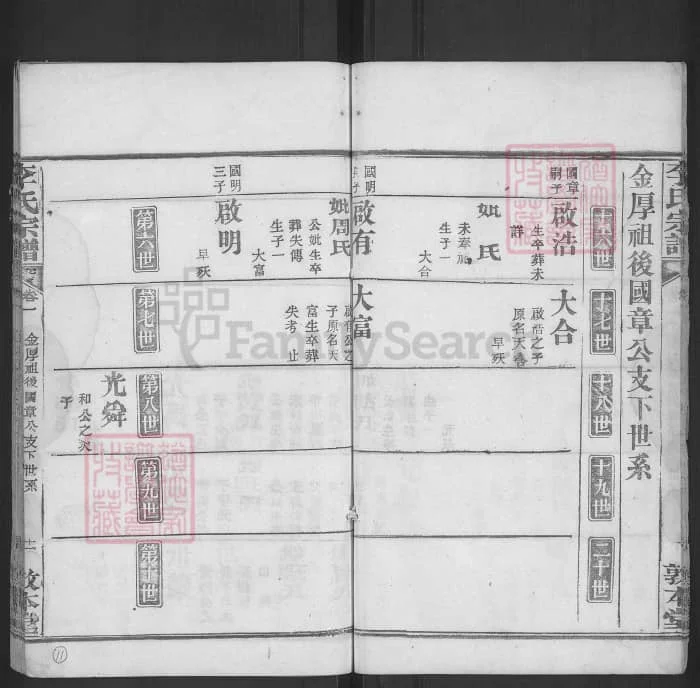 金厚祖後國章公支下世系
十六世
國章
嗣子
啟浩
生卒葬未
詳
妣氏
未奉祀
生子一
大合
國明
啟有
妣周氏
公妣生卒
葬失傳
生子一
大富
國明
三子
啟明
早殀
第六世
十七世
大合
啟浩之子
原名天喜
早殀
大富
啟有公之
子原名天
富生卒葬
失考止
第七世
十八世
第八世
光舜
和公之次
子
十九世
第九世
二十世
第十世
李氏宗譜
卷一
金厚祖後國章公支下世系
十一
敦本堂
11
FamilySearch